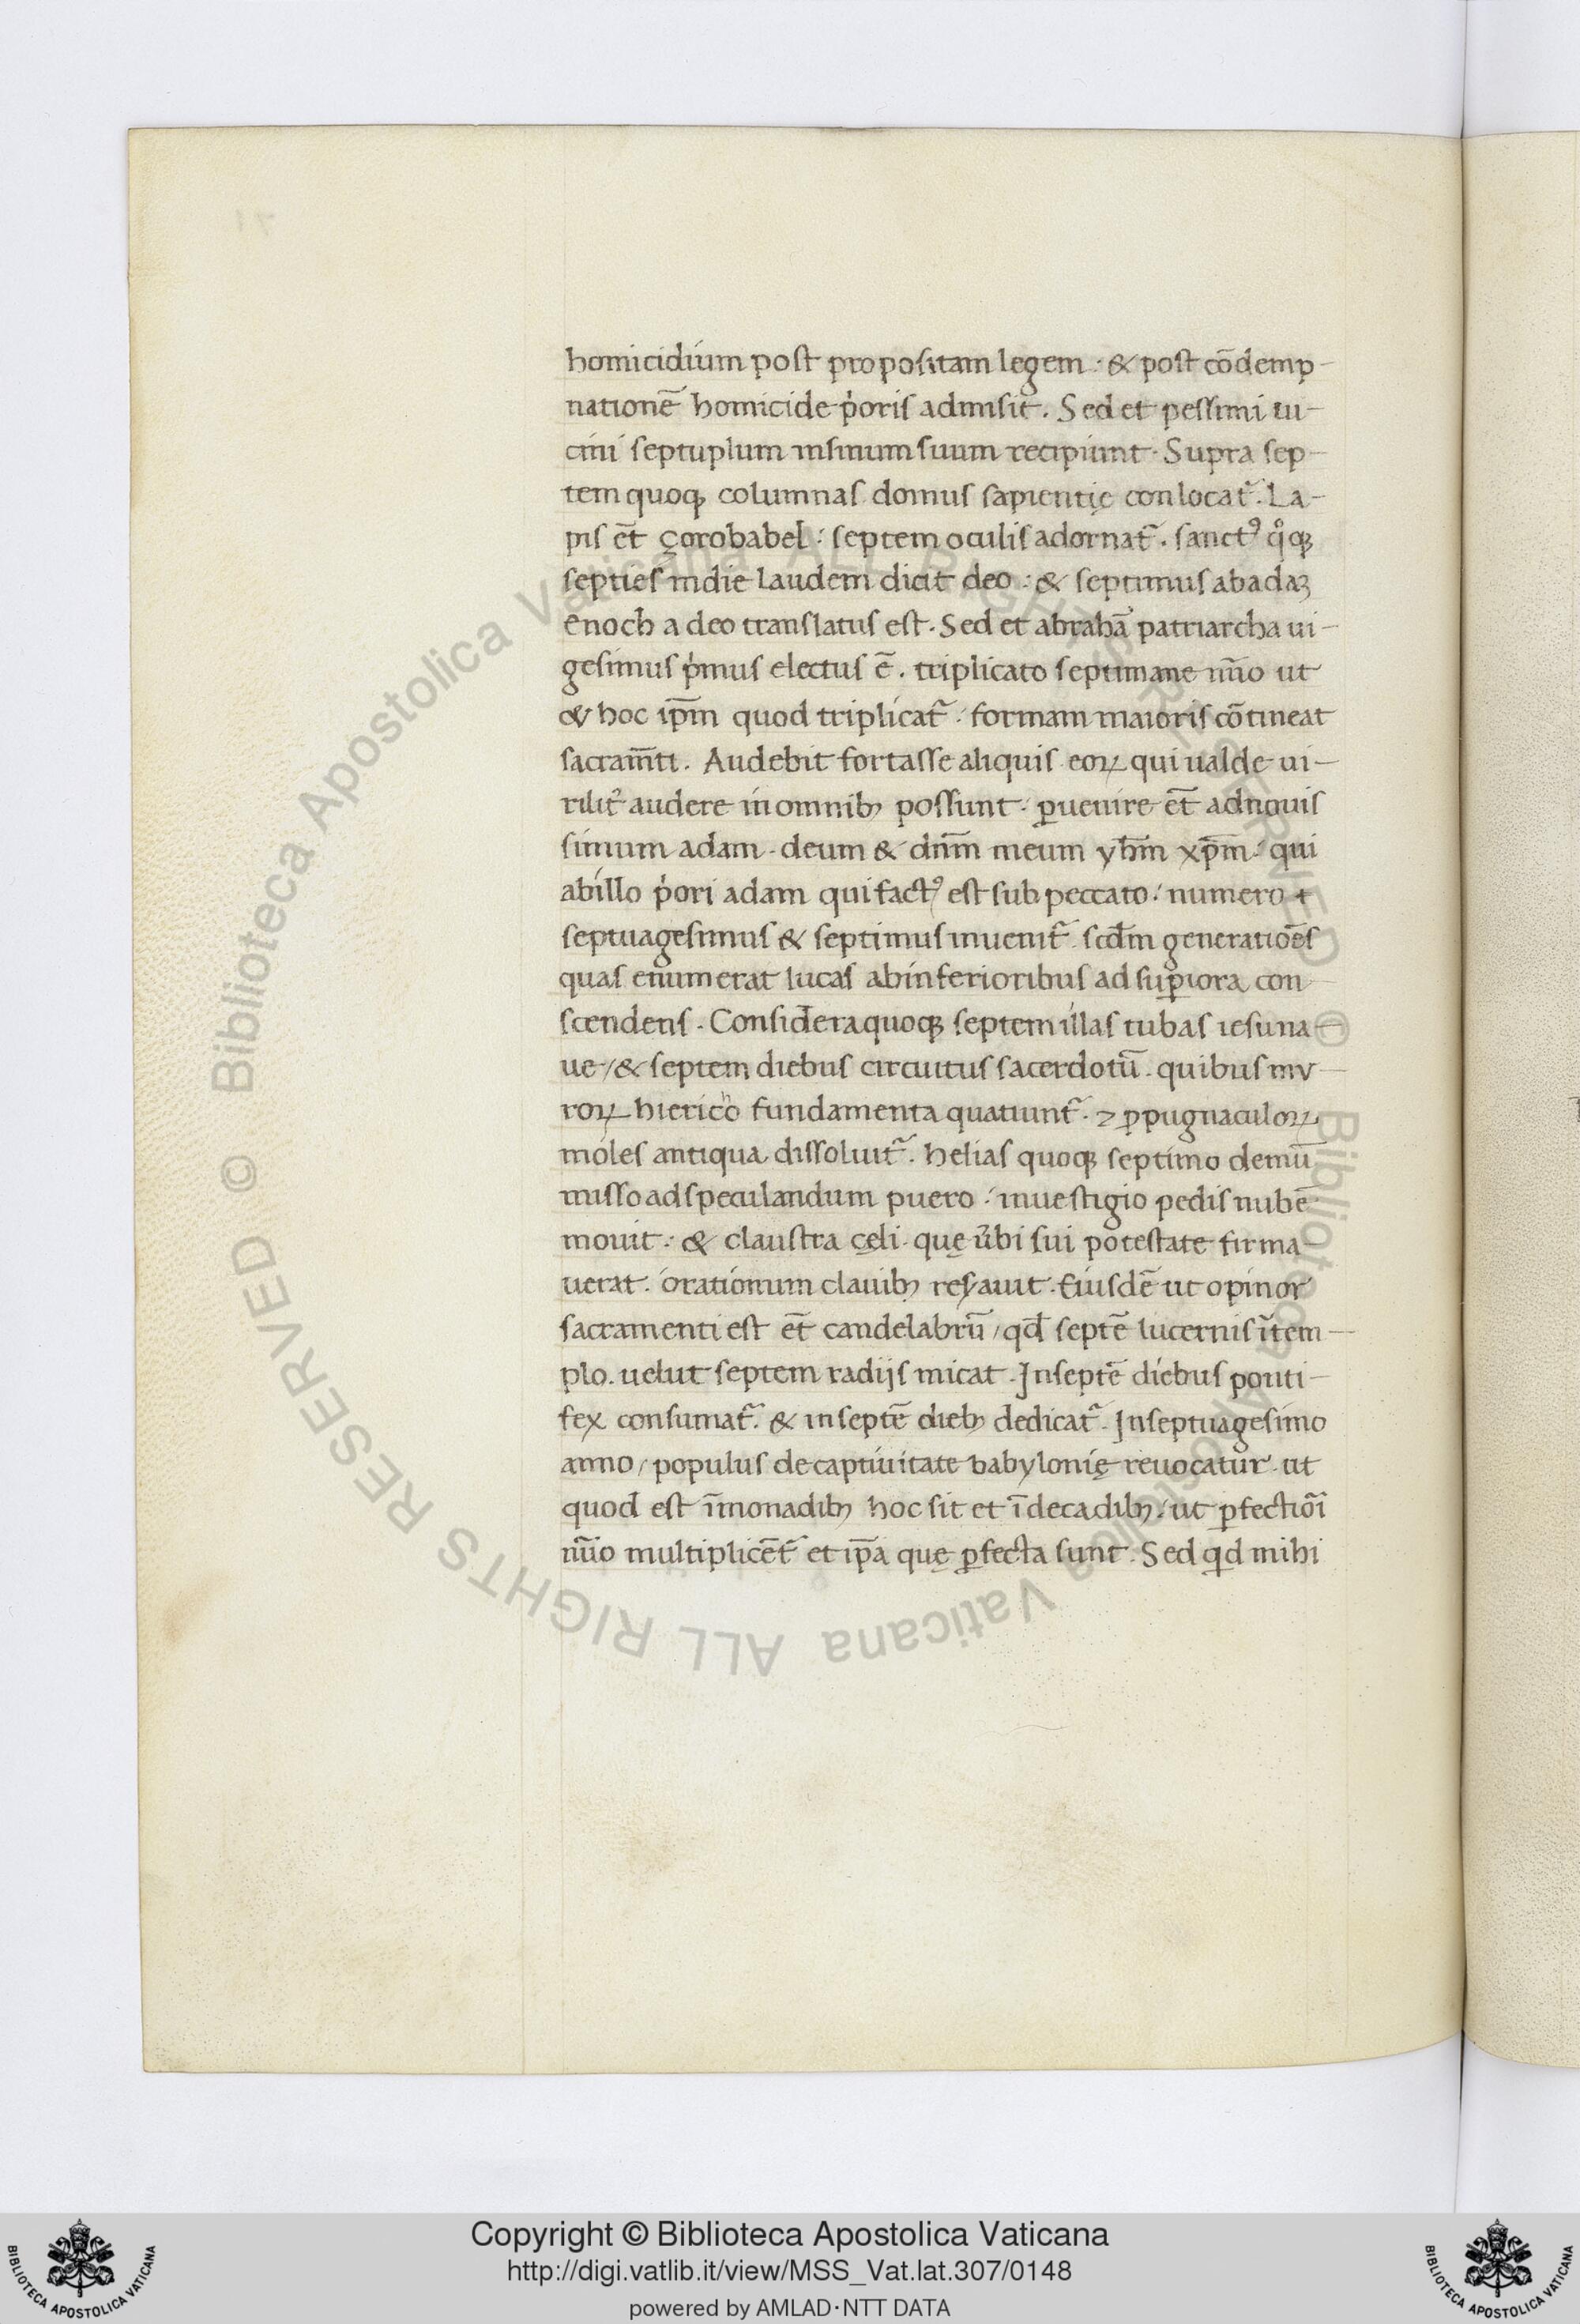 homicidium post propositam legem · & post cōdemp-
nationē homicide p̍oris admisit. Sed et pessimi ui-
cini septuplum insinum suum recipiunt · Supra sep-
tem quoqꝫ columnas domus sapientię conlocat᷑. La-
pis et̄ çorobabel : septem oculis adornat᷑. sanctꝰ qͦqꝫ
septies indie laudem dicit deo : & septimus abadaꝫ
enoch a deo translatus est. Sed et abrahā patriarcha ui-
gesimus p̍mus electus ē. triplicato septimane nūo ut
& hoc ip̄m quod triplicat᷑ : formam maioris cōtineat
sacram̄ti. Audebit fortasse aliquis eoꝝ qui ualde ui-
rilit᷑ audere in omnibꝫ possunt · ꝑuenire et̄ adnouis
simum adam · deum & dn̄m meum yh̄m xp̄m · qui
abillo p̍ori adam qui factꝰ est sub peccato : numero +
septuagesimus & septimus inuenit᷑. scd̄m generatiōes
quas enumerat lucas abinferioribus ad suꝑiora con
scendens. Considera quoqꝫ septem illas tubas iesuna-
ue / & septem diebus circuitus sacerdotū. quibus mv-
roꝝ hierico fundamenta quatiunt᷑. ⁊ ꝓpugnaculoꝝ
moles antiqua dissoluit᷑. helias quoqꝫ septimo demū
misso ad speculandum puero : inuestigio pedis nubē
mouit : & claustra cęli · quę ūbi sui potestate firma-
uerat · orationum clauibꝫ reserauit. Eiusdē ut opinor
sacramenti est et̄ candelabrū / qd̄ septē lucernis ītem-
plo. uelut septem radijs micat. Inseptē diebus ponti-
fex consumat᷑. & in septē diebꝫ dedicat᷑. Inseptuagesimo
anno / populus de captiuitate babylonię reuocatur · ut
quod est īmonadibꝫ hoc sit et ī decadibꝫ : ut ꝑfectiōi
nūo multiplicēt᷑ et ip̄a quę ꝑfecta sunt. Sed qd mihi
Copyright © Biblioteca Apostolica Vaticana
http://digi.vatlib.it/view/MSS_Vat.lat.307/0148
powered by AMLAD·NTT DATA
BIBLIOTECA APOSTOLICA VATICANA
BIBLIOTECA APOSTOLICA VATICANA
© Biblioteca Apostolica Vaticana ALL RIGHTS RESERVED
© Biblioteca Apostolica Vaticana ALL RIGHTS RESERVED